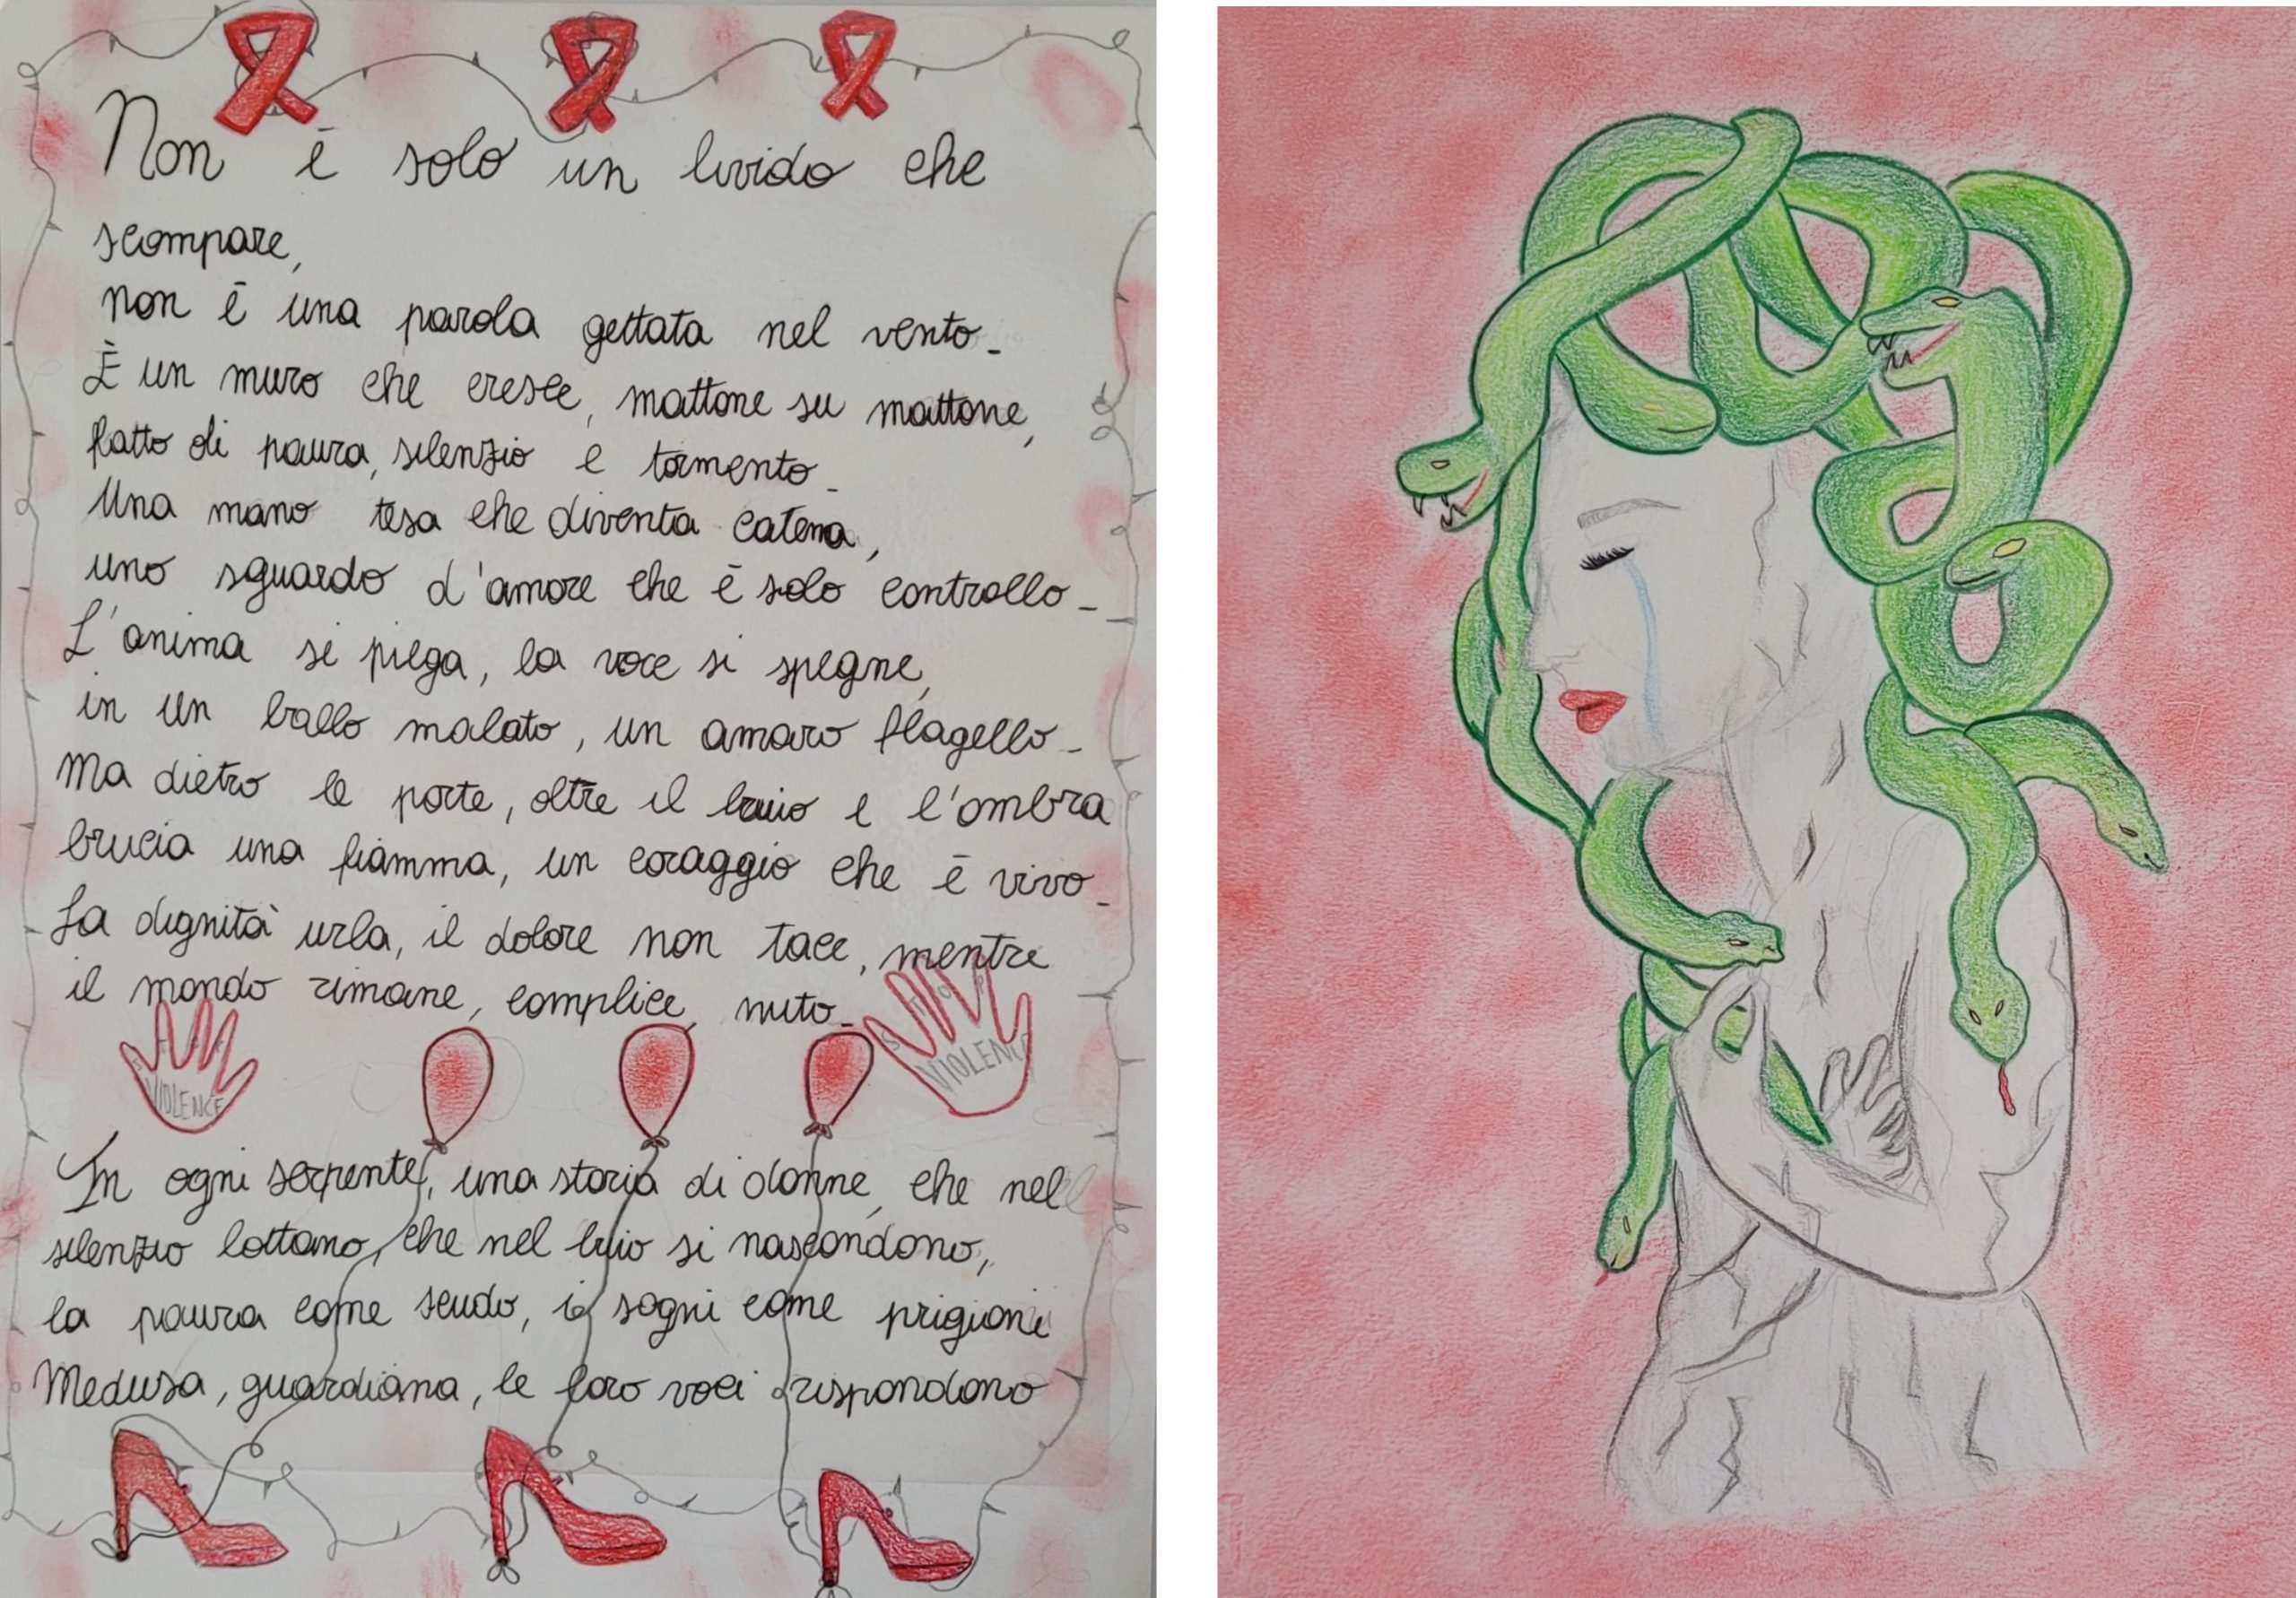 Non è solo un livido che
scompare,
non è una parola gettata nel vento.
È un muro che cresce, mattone su mattone,
fatto di paura, silenzio e tormento.
Una mano tesa che diventa catena,
uno sguardo d'amore che è solo controllo.
L'anima si piega, la voce si spegne,
in un ballo malato, un amaro flagello.
Ma dietro le porte, oltre il buio e l'ombra
brucia una fiamma, un coraggio che è vivo.
La dignità urla, il dolore non tace, mentre
il mondo rimane, complice, muto.
STOP
VIOLENCE
STOP
VIOLENCE
In ogni serpente, una storia di donne, che nel
silenzio lottano, che nel buio si nascondono,
la paura come scudo, i sogni come prigioni
Medusa, guardiana, le loro voci rispondono